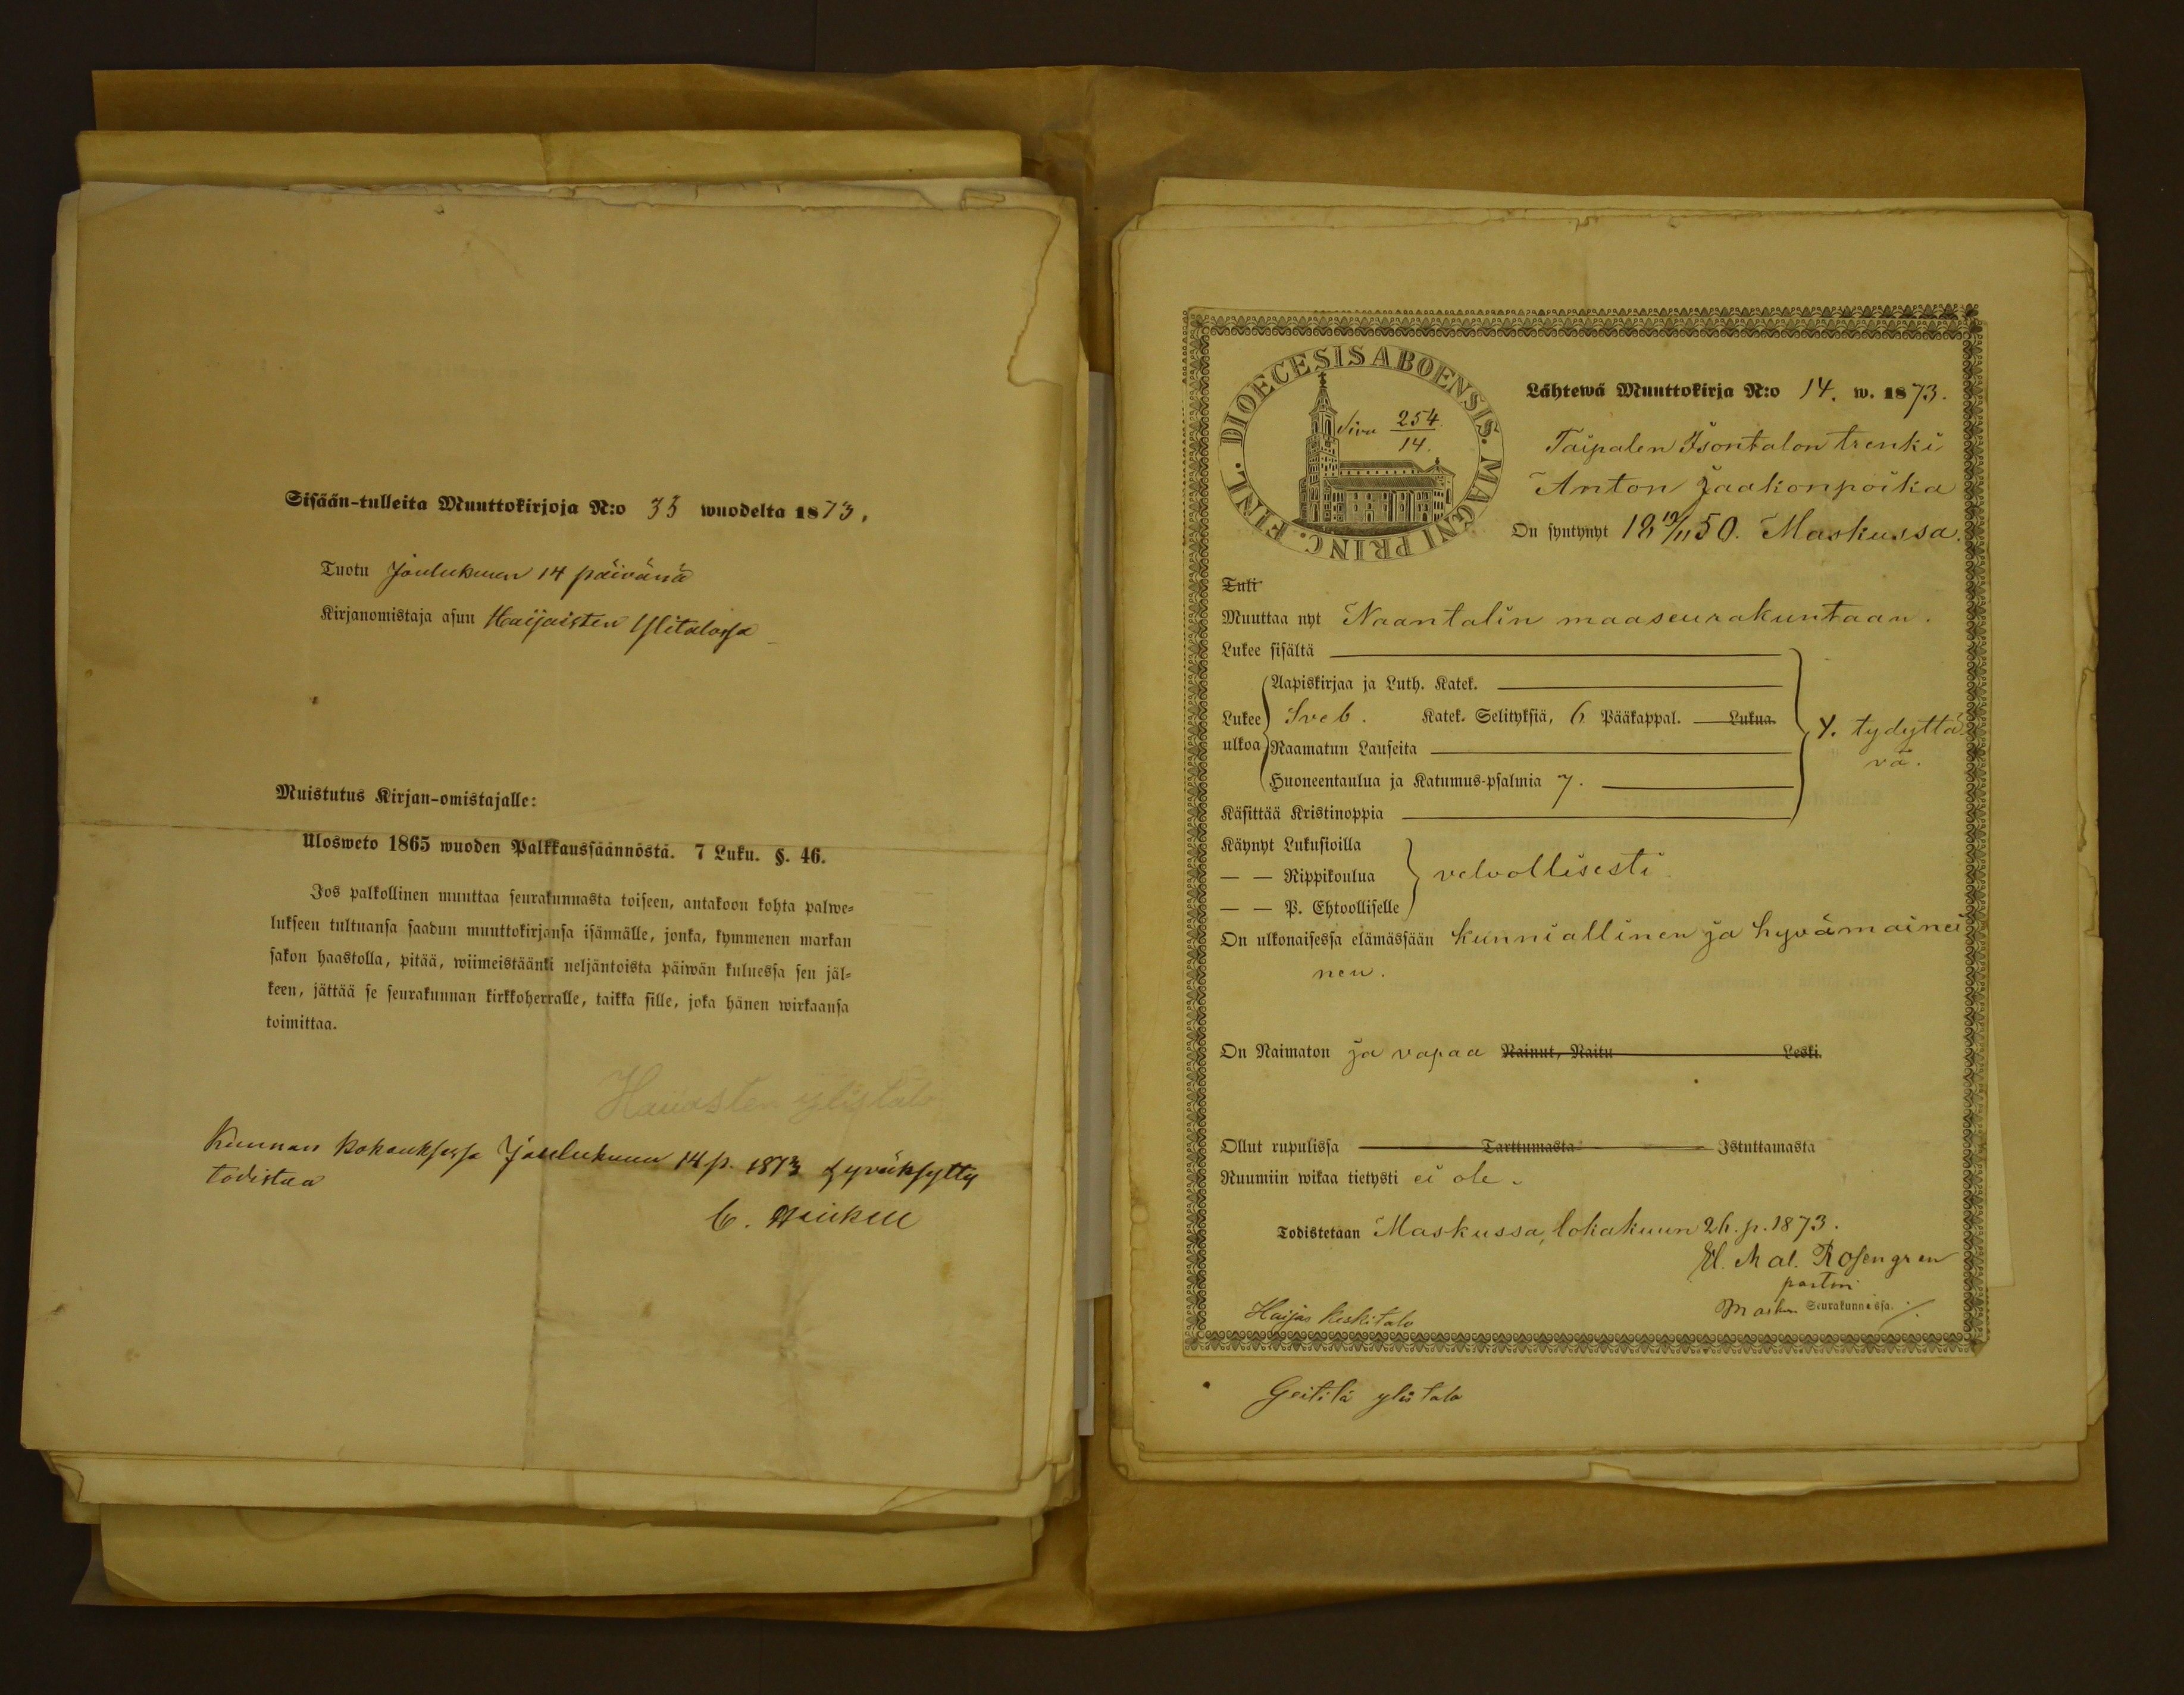 Sisään-tulleita Muuttokirjoja N:o 33 wuodelta 1873.
Tuotu Joulukuun 14 päivänä
Kirjanomistaja asuu Haijaisten Ylitalossa
Muistutus Kirjan-omistajalle:
Ulosweto 1865 wuoden Palkkaussäännöstä. 7 Luku. §. 46.
Jos palkollinen muuttaa seurakunnasta toiseen, antakoon kohta palwe=
lukseen tultuansa saadun muuttokirjansa isännälle, jonka, kymmenen markan
sakon haastolla, pitää, wiimeistäänki neljäntoista päiwän kuluessa sen jäl=
keen, jättää se seurakunnan kirkkoherralle, taikka sille, joka hänen wirkaansa
toimittaa.
Haiasten ylistalo
Kunnan kokouksessa Joulukuun 14 p. 1873 hyväksytty
todistaa
C.
DIOECESIS ABOENSIS. MAGNI PRINC. FINL.
Sivu 254
14.
Lähtewä Muuttokirja N:o 14. w. 1873.
Taipalen Isontalon trenki
Anton Jaakonpoika
On syntynyt 18 19/11 50. Maskussa.
Tuli
Muuttaa nyt Naantalin maaseurakuntaan.
Lukee sisältä
Aapiskirjaa ja Luth. Katek.
Lukee ulkoa
Sveb. Katek. Selityksiä, 6 Pääkappal. Lukua.
Raamatun Lauseita
Huoneentaulua ja Katumus-psalmia 7.
Y. tydyttä
vä.
Käsittää Kristinoppia
Käynyt Lukusioilla
— — Rippikoulua velvollisesti
— — P. Ehtoolliselle
On ulkonaisessa elämässään kunniallinen ja hyvämainei
nen.
On Naimaton ja vapaa Nainut, Naitu Leski.
Ollut rupulissa Tarttumasta Istuttamasta
Ruumiin wikaa tietysti ei ole.
Todistetaan Maskussa, lokakuun 26. p. 1873.
El. Mal. Rosengren
pastori
Maskun Seurakunnassa.
Haijas Keskitalo
Geitilä ylistalo